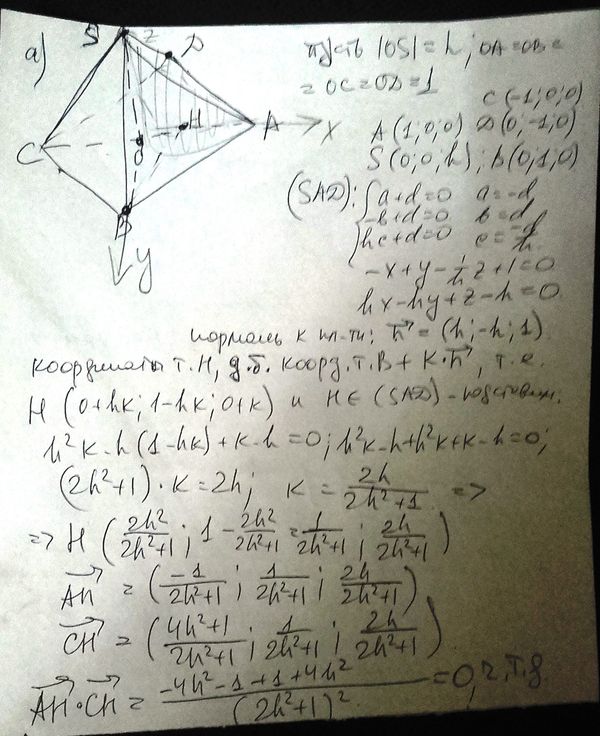 а)
S
z
D
C
O
H
A
x
B
y
пусть |OS|=h; OA=OB=
=OC=OD=1
C(-1;0;0)
A(1;0;0) D(0;-1;0)
S(0;0;h); B(0;1;0)
(SAD): { a+d=0 a=-d
-b+d=0 b=d
hc+d=0 c=-d/h
-x+y-1/h z+1=0
hx-hy+z-h=0
нормаль к пл-ти: n⃗ = (h;-h;1)
координаты т.H, д.б. коорд.т.B+k·n⃗, т.е.
H(0+hk; 1-hk; 0+k) и H∈(SAD) - подставим:
h²k-h(1-hk)+k-h=0; h²k-h+h²k+k-h=0;
(2h²+1)·k=2h; k = 2h/(2h²+1) =>
=> H(2h²/(2h²+1); 1-2h²/(2h²+1)=1/(2h²+1); 2h/(2h²+1))
AH⃗ = (-1/(2h²+1); 1/(2h²+1); 2h/(2h²+1))
CH⃗ = (4h²+1/2h²+1; 1/(2h²+1); 2h/(2h²+1))
AH⃗·CH⃗ = (-4h²-1+1+4h²)/(2h²+1)² =0, ч.т.д.